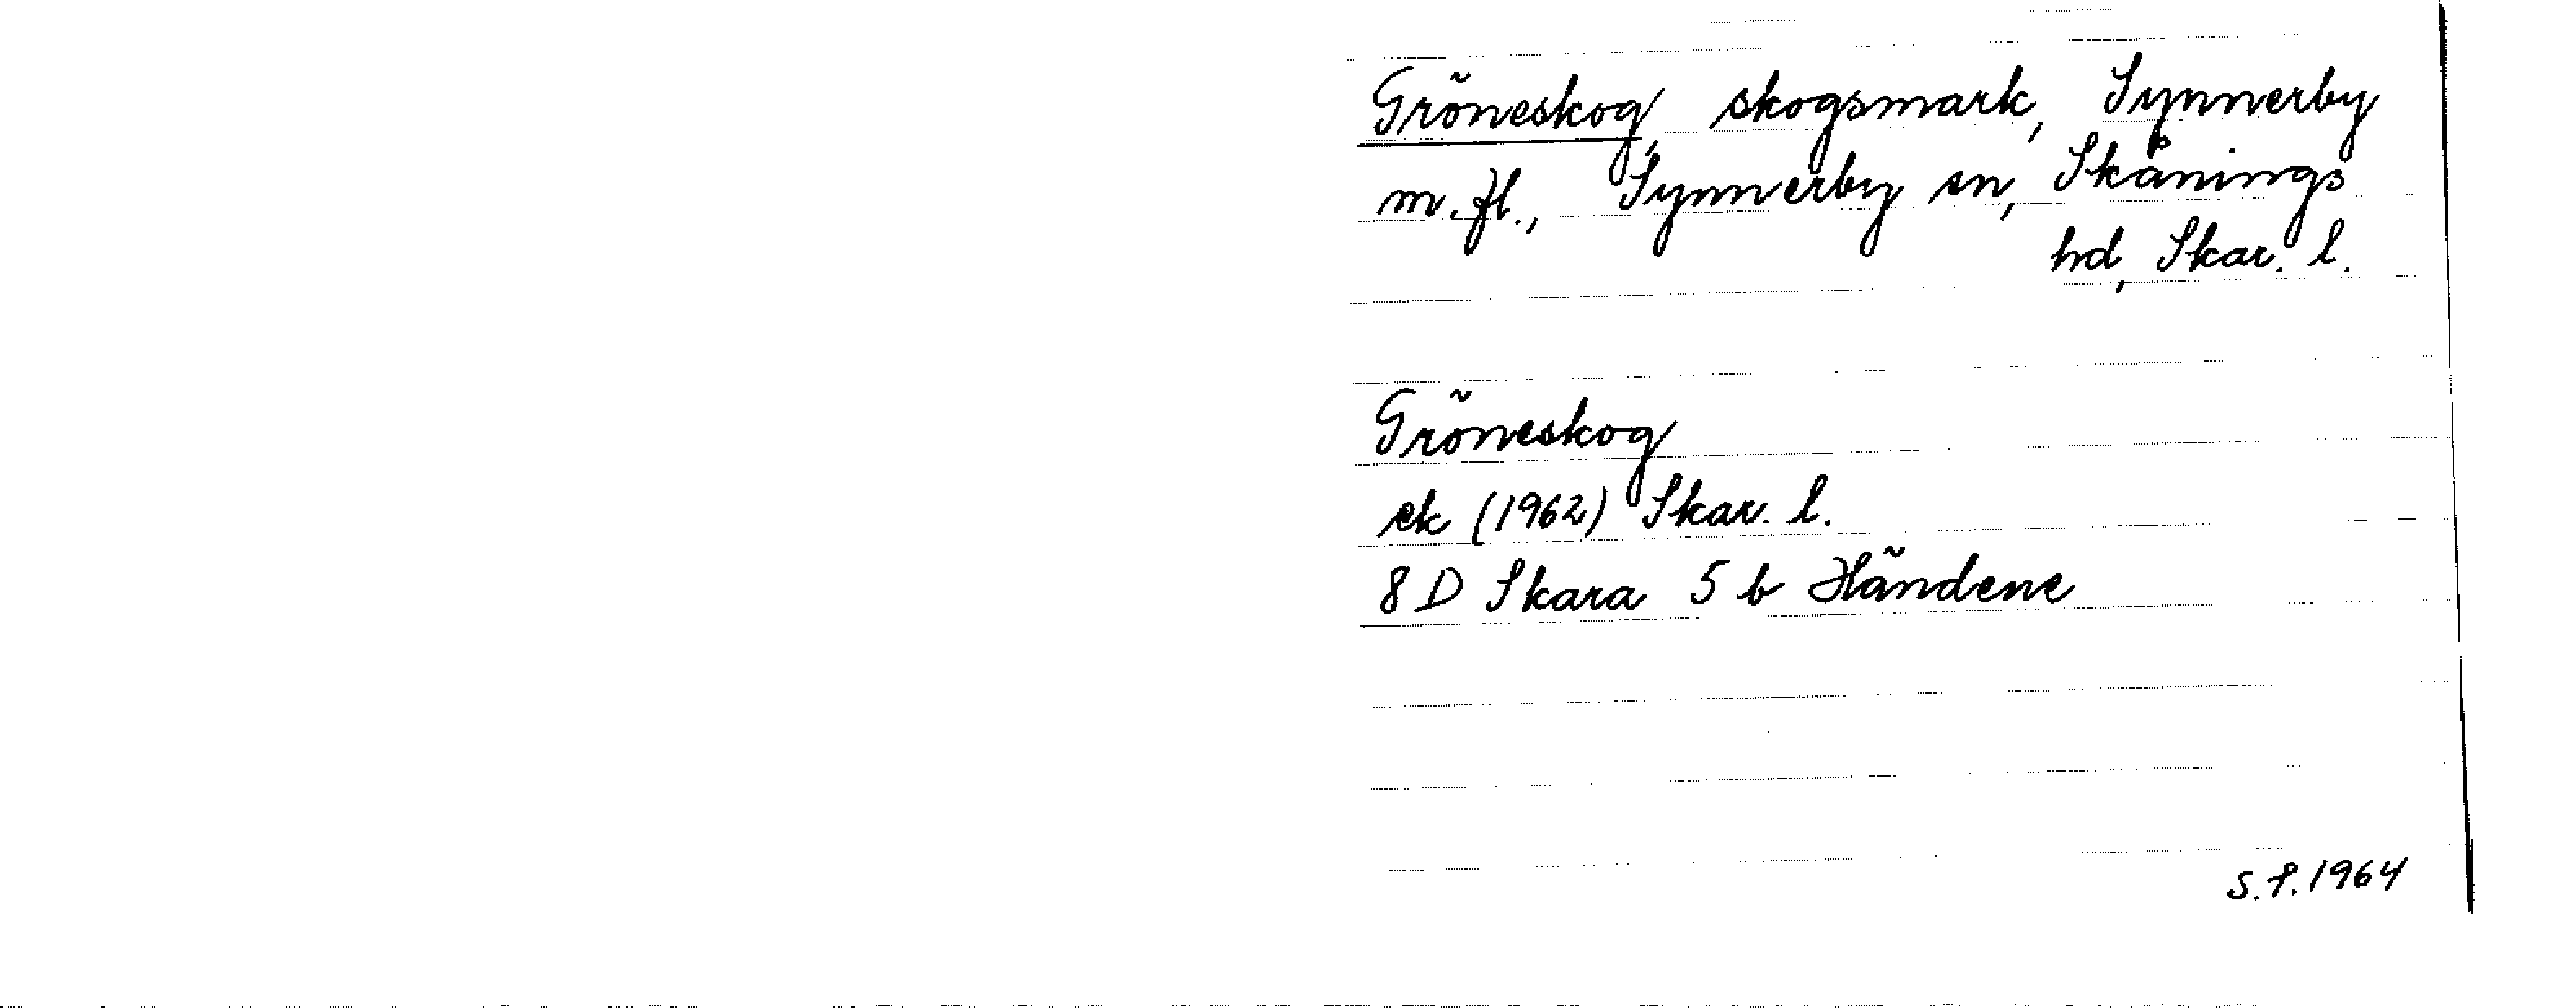 Gröneskog, skogsmark, Synnerby
m.fl., Synnerby sn, Skånings
hd, Skar. l.
Gröneskog
ek (1962) Skar. l.
8 D Skara 5 b Händene
S.F. 1964